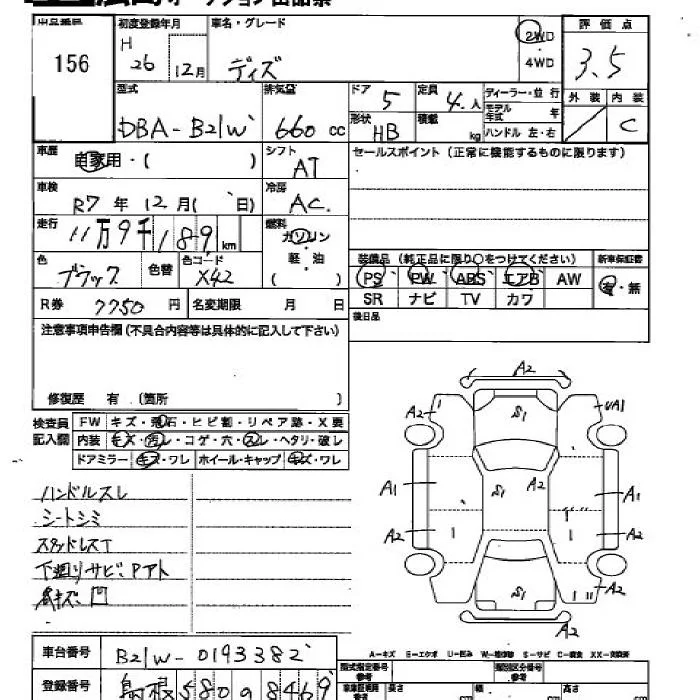 出品番号 156
初度登録年月 H 26 12月
車名・グレード ディズ
2WD
4WD
評価点 3.5
外装 内装 C
型式 DBA-B21W
排気量 660 cc
ドア 5
定員 4.人
形状 HB
積載 kg
ディーラー・並行
モデル年式 年
ハンドル 左・右
車歴 自家用・( )
シフト AT
セールスポイント (正常に機能するものに限ります)
車検 R7 年 12 月( 日)
冷房 AC.
走行 11万9千189 km
燃料 ガソリン・軽・油 ( )
色 ブラック 色替
色コード X42
装備品 (純正品に限り○をつけてください)
新車保証書 有・無
PS PW ABS エアB AW
SR ナビ TV カワ
R券 7750 円 名変期限 月 日
後日品
注意事項申告欄 (不具合内容等は具体的に記入して下さい)
修復歴 有 (箇所 )
検査員記入欄
FW キズ・飛石・ヒビ割・リペア跡・X要
内装 キズ・汚レ・コゲ・穴・スレ・ヘタリ・破レ
ドアミラー キズ・ワレ ホイール・キャップ キズ・ワレ
ハンドルスレ
シートシミ
スタッドレスT
下廻りサビ、Pアト
キズ、凹
A2
A2 S1 UA1
A1 S1 A2 A1
A2 A2
S1 A2
A2
A-キズ E-エクボ U-凹み W-補修跡 S-サビ C-腐食 XX-交換済
車台番号 B21W-0193382
登録番号 島根 580 8469
型式指定番号 参考
類別区分番号 参考
長さ 幅 高さ